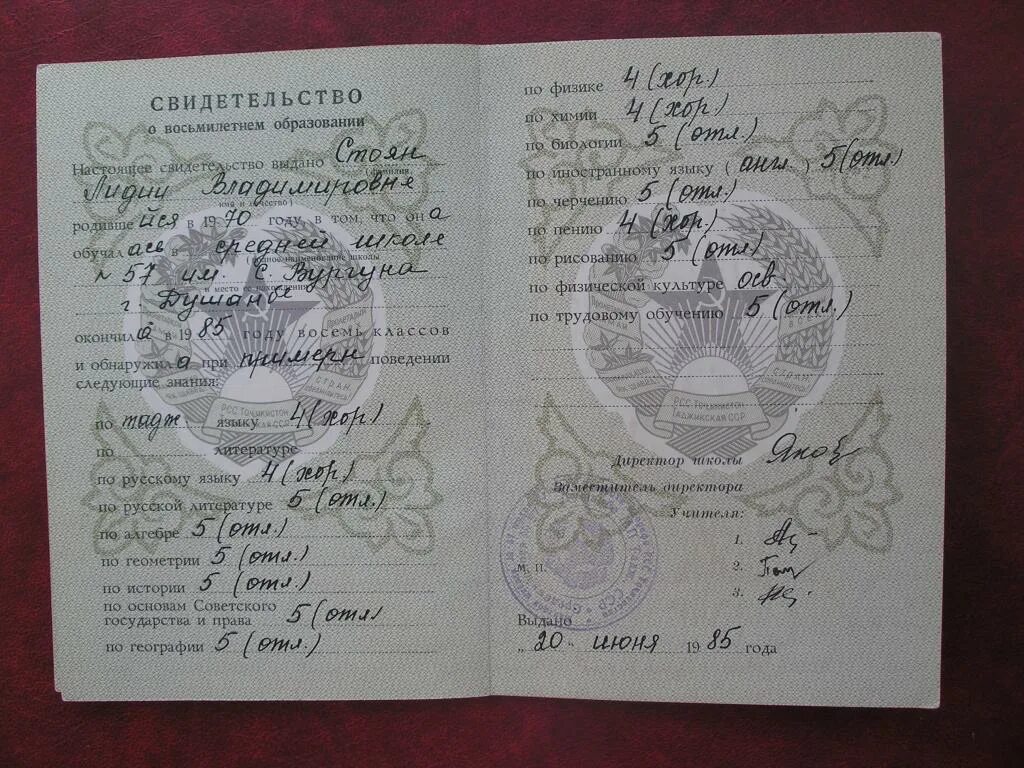 СВИДЕТЕЛЬСТВО
о восьмилетнем образовании
Настоящее свидетельство выдано Стоян
(фамилия,
Лидии Владимировне
имя и отчество)
родившейся в 1970 году, в том, что она
обучалась в средней школе
(полное наименование школы
№ 57 им. С. Вургуна
и место ее нахождения)
г. Душанбе
окончила в 1985 году восемь классов
и обнаружила при примерн поведении
следующие знания:
по тадж. языку 4 (хор.)
по литературе
по русскому языку 4 (хор.)
по русской литературе 5 (отл.)
по алгебре 5 (отл.)
по геометрии 5 (отл.)
по истории 5 (отл.)
по основам Советского
государства и права 5 (отл
по географии 5 (отл.)
по физике 4 (хор.)
по химии 4 (хор)
по биологии 5 (отл.)
по иностранному языку (англ.) 5 (отл)
по черчению 5 (отл.)
по пению 4 (хор.)
по рисованию 5 (отл)
по физической культуре осв
по трудовому обучению 5 (отл.)
РСС ТОҶИКИСТОН
ТАДЖИКСКАЯ ССР
Директор школы
Заместитель директора
Учителя:
1.
2.
3.
М. П.
Выдано
„20" июня 1985 года